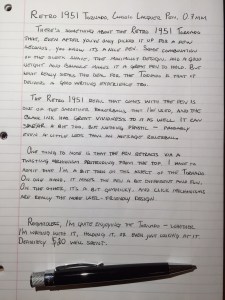 RETRO 1951 TORNADO CLASSIC LACQUER PEN, 0.7MM
THERE'S SOMETHING ABOUT THE RETRO 1951 TORNADO
THAT, EVEN AFTER YOU'VE ONLY PICKED IT UP FOR A FEW
SECONDS, YOU KNOW IT'S A NICE PEN. SOME COMBINATION
OF THE CLICKY KNOCK, THE BEAUTIFUL DESIGNS, AND A GOOD
WEIGHT AND BALANCE MAKES IT A GREAT PEN TO HOLD. BUT
WHAT REALLY SEALS THE DEAL FOR THE TORNADO IS THAT IT
DELIVERS A GOOD WRITING EXPERIENCE TOO.
THE RETRO 1951 REFILL THAT COMES WITH THE PEN IS
ONE OF THE SMOOTHEST ROLLERBALLS THAT I'VE USED, AND THE
BLACK INK HAS GREAT VIVIDNESS TO IT AS WELL. IT CAN
SMEAR A BIT TOO, BUT NOTHING DRASTIC - PROBABLY
EVEN A LITTLE LESS THAN AN AVERAGE ROLLERBALL.
ONE THING TO NOTE IS THAT THE PEN RETRACTS VIA A
TWISTING MECHANISM PROTRUDING FROM THE TOP. I HAVE TO
ADMIT THAT I'M A BIT TORN ON THIS ASPECT OF THE TORNADO.
ON ONE HAND, IT MAKES THE PEN A BIT DIFFERENT AND FUN.
ON THE OTHER, IT'S A BIT GIMMICKY, AND CLICK MECHANISMS
ARE REALLY THE MORE USER-FRIENDLY DESIGN.
REGARDLESS, I'M QUITE ENJOYING THE TORNADO - WHETHER
I'M WRITING WITH IT, HOLDING IT, OR EVEN JUST LOOKING AT IT.
DEFINITELY $20 WELL SPENT.